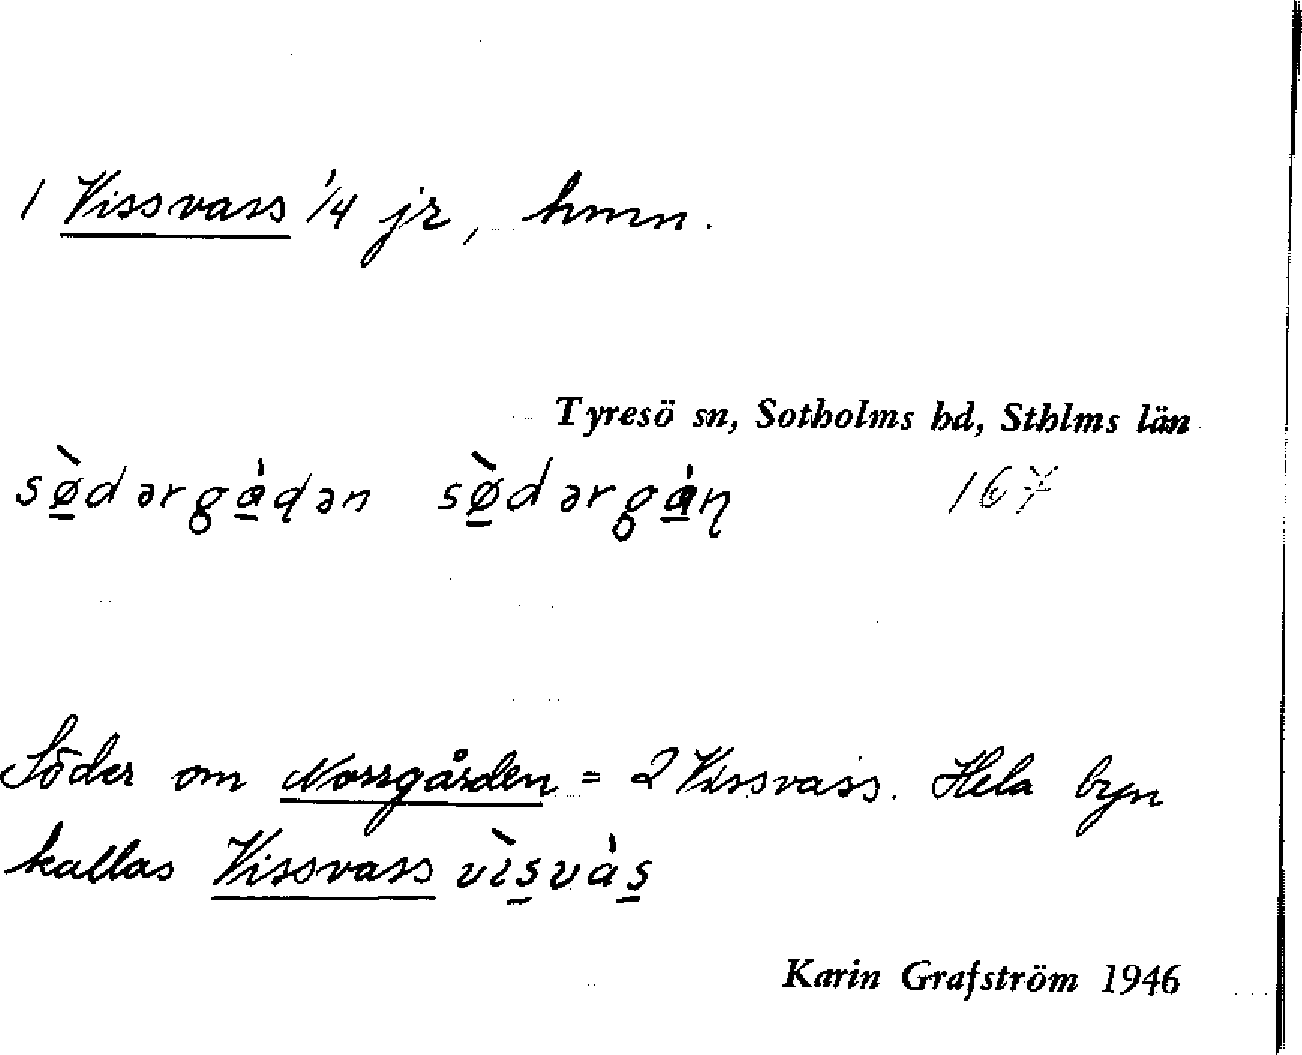 1 Vissvass 1/4 jr, hmn.
Tyresö sn, Sotholms hd, Sthlms län
sø̀dərgȧɖən sø̀dərgȧɳ 167
Söder om Norrgården = 2 Vissvass. Hela byn
kallas Vissvass vìsvȧs
Karin Grafström 1946